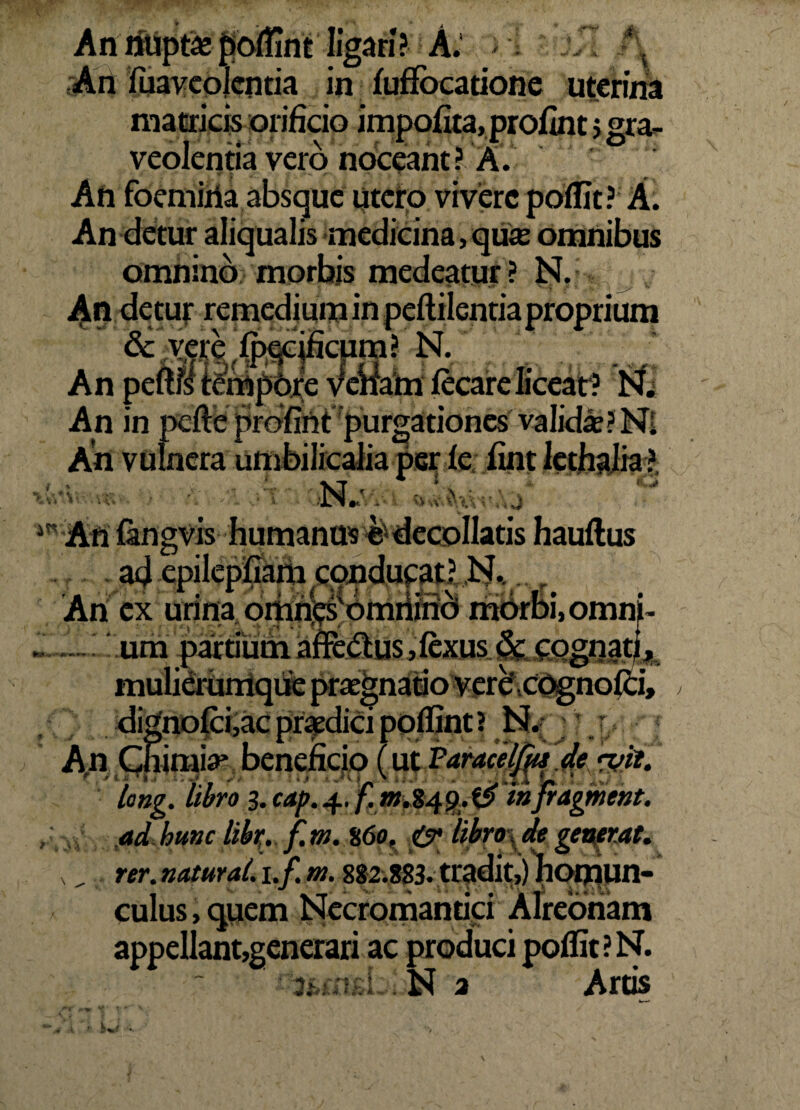 An nuptæ poſſint ligari? A.
An ſuaveolentia in ſuffocatione uterina
matricis orificio impoſita, proſint; gra-
veolentia verò noceant? A.
An foemina absque utero vivere poſſit? A.
An detur aliqualis medicina, quæ omnibus
omninò morbis medeatur? N.
An detur remedium in peſtilentia proprium
& verè ſpecificum? N.
An peſtis tempore venam ſecare liceat? N.
An in peſte proſint purgationes validæ? N.
An vulnera umbilicalia per ſe ſint lethalia?
N.
An ſangvis humanus è decollatis hauſtus
ad epilepſiam conducat? N.
An ex urina omnes omninò morbi, omni-
um partium affectus, ſexus & cognati,
mulierumque prægnatio verè cognoſci,
dignoſci, ac prædici poſſint? N.
An Chimiæ beneficio (ut Paracelſus de vit.
long. libro 3. cap. 4. f. m. 849. & in fragment.
ad hunc libr. f. m. 860. & libro de generat.
rer. natural. 1. f. m. 882.883. tradit,) homun-
culus, quem Necromantici Alreonam
appellant, generari ac produci poſſit? N.
N 2 Artis